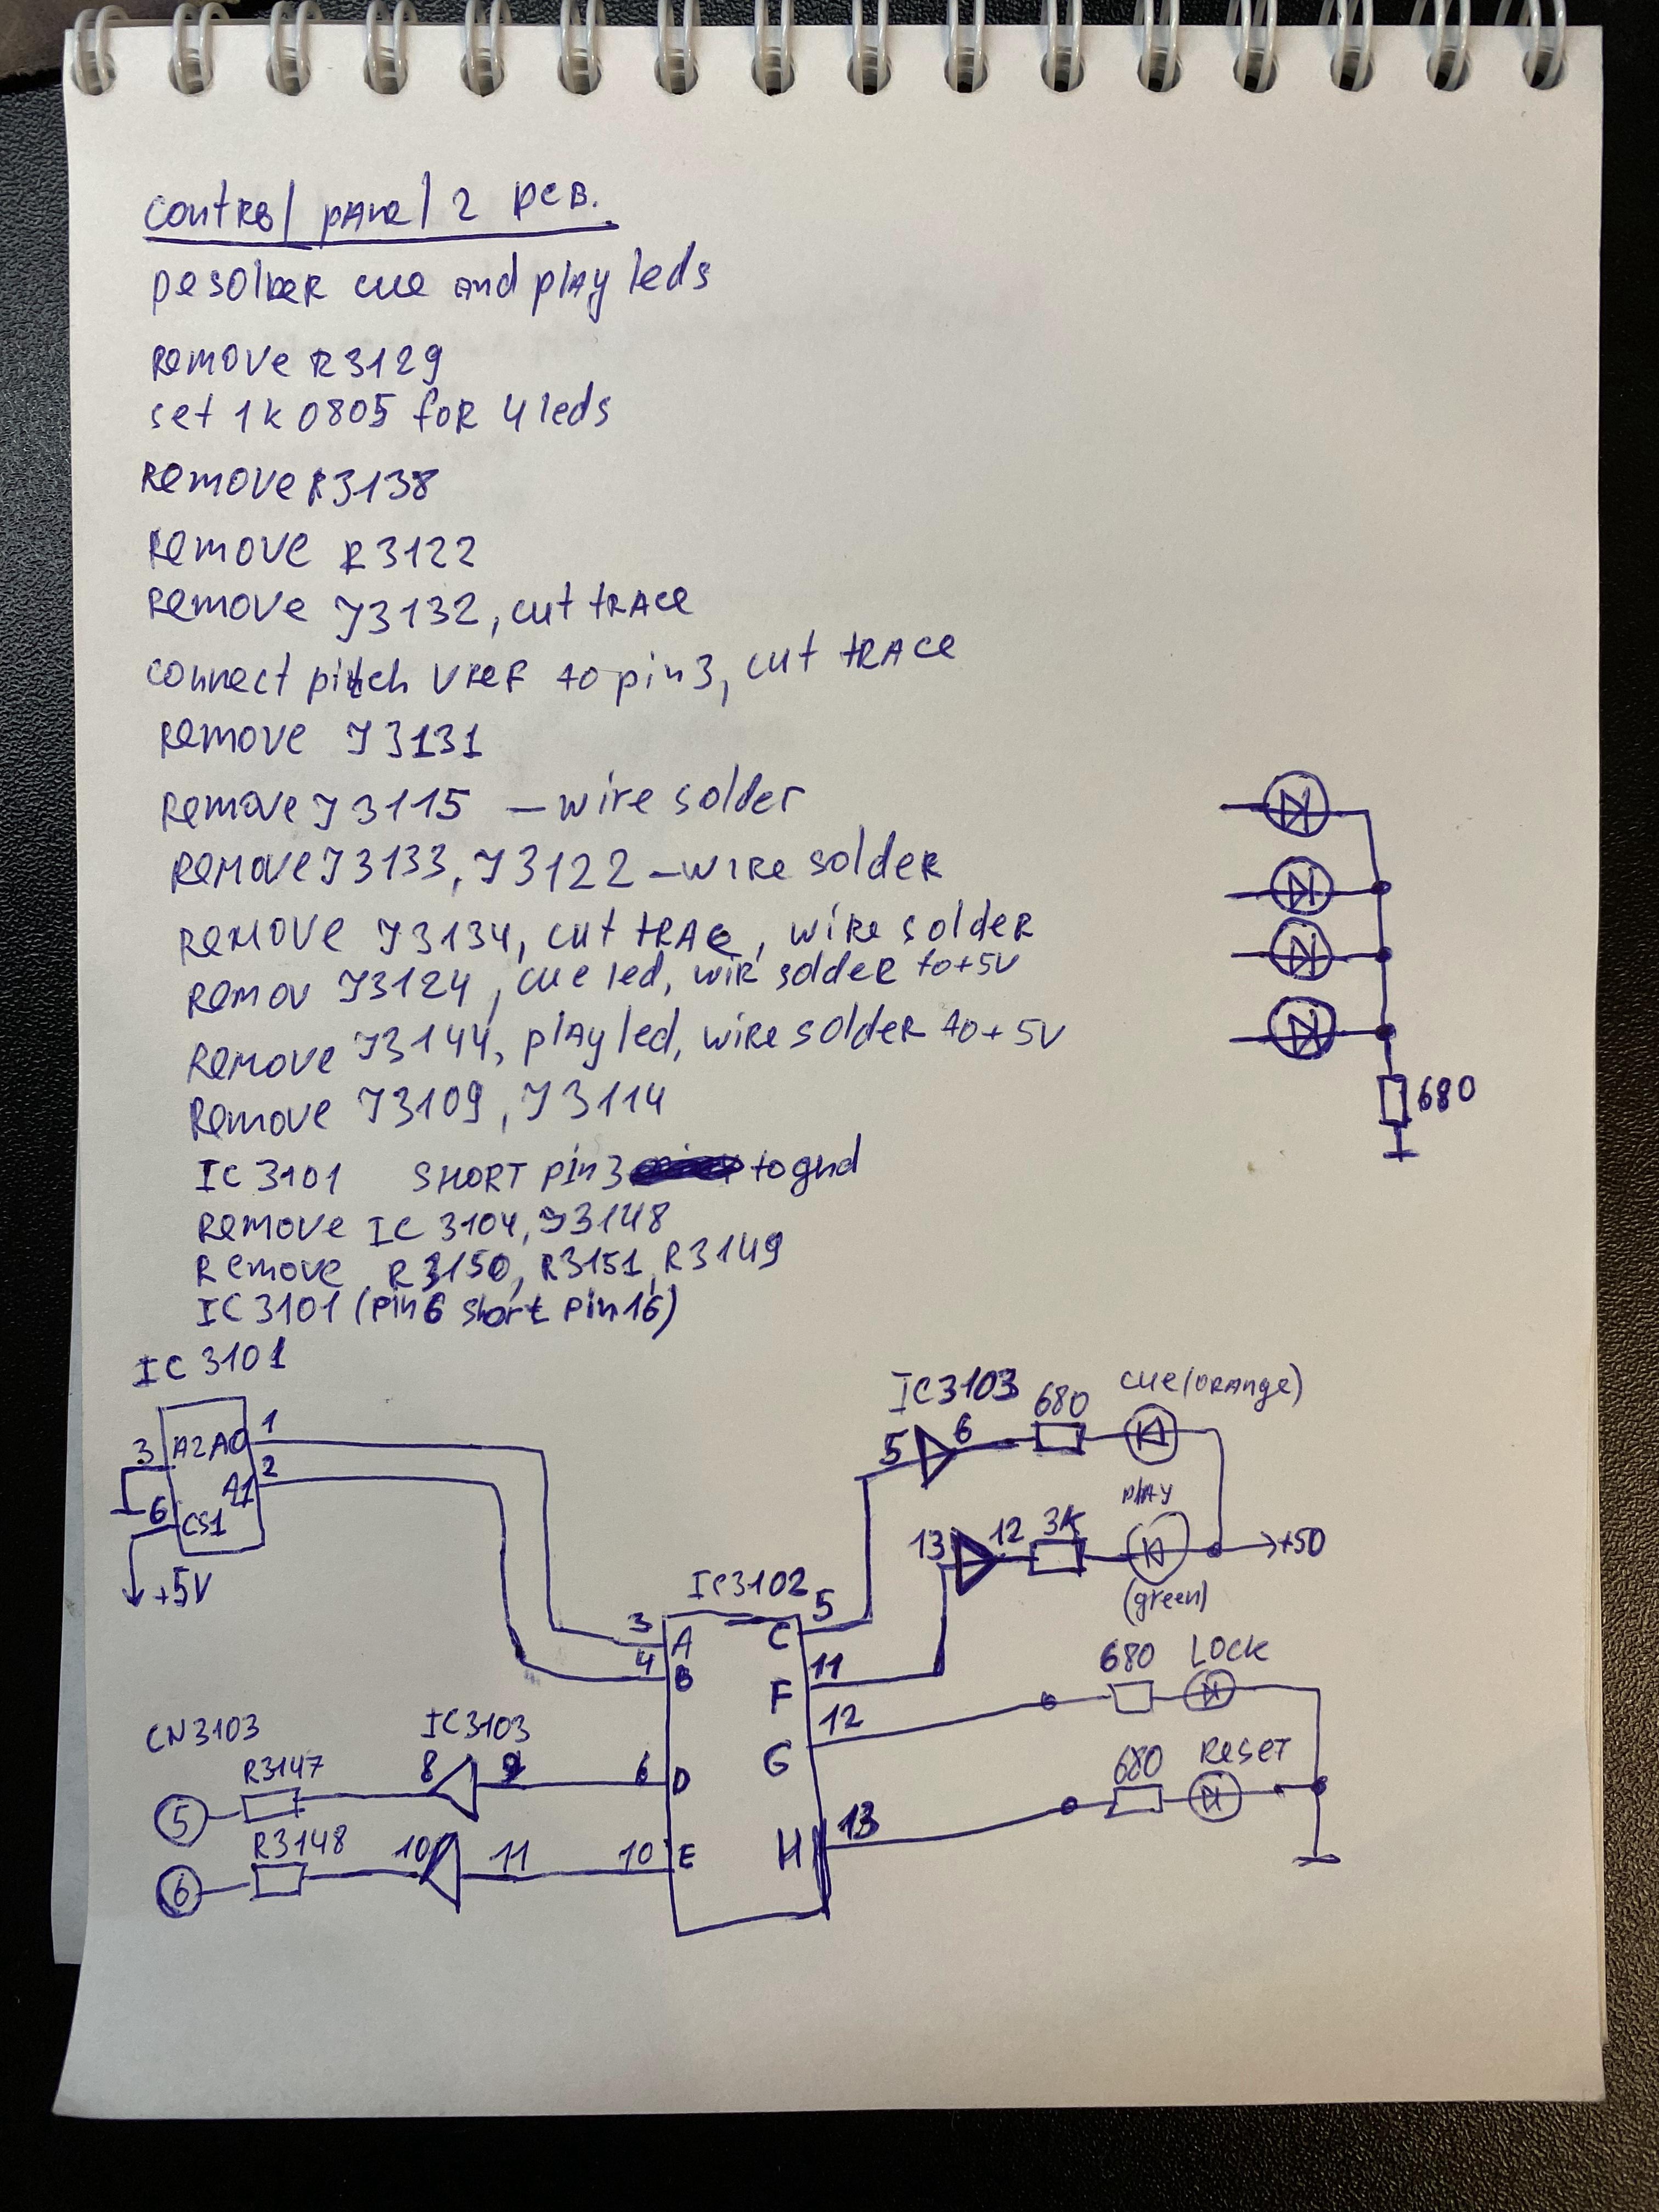 control panel 2 PCB.
Desolder cue and play leds
Remove R3129
set 1k 0805 for 4 leds
Remove R3138
Remove R3122
Remove J3132, cut trace
connect pitch Vref to pin3, cut trace
Remove J3131
Remove J3115 – wire solder
Remove J3133, J3122 – wire solder
Remove J3134, cut trace, wire solder
Remov J3124, cue led, wir solder to +5V
Remove J3144, play led, wire solder to +5V
Remove J3109, J3114
680
IC 3101 SHORT pin 3 to gnd
Remove IC 3104, J3148
Remove R3150, R3151, R3149
IC 3101 (pin 6 short pin 16)
IC 3101
3 A2 A0 1
A1 2
6 CS1
+5V
IC3103 680 cue (orange)
5 6
play
13 12 3K +5V
(green)
IC3102
3 A C 5
4 B F 11
G 12
680 LOCK
CN3103 IC3103
5 R3147 8 9 6 D
680 Reset
6 R3148 10 11 10 E H 13